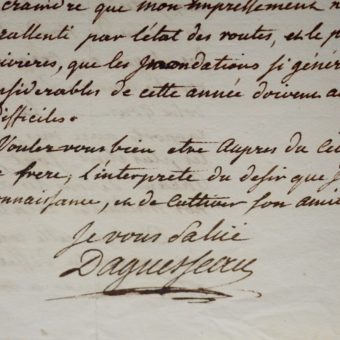 craindre que mon empressement n
rallenti par l'état des routes, et le p
ivieres, que les Jnondations si génér
nsiderables de cette année doivent a
difficiles.
Voulez vous bien etre Aupres du Ci
e frere, l'interprete du desir que J
onnaissance, et de Cultiver son amie
Je vous Salue
Daguesseau